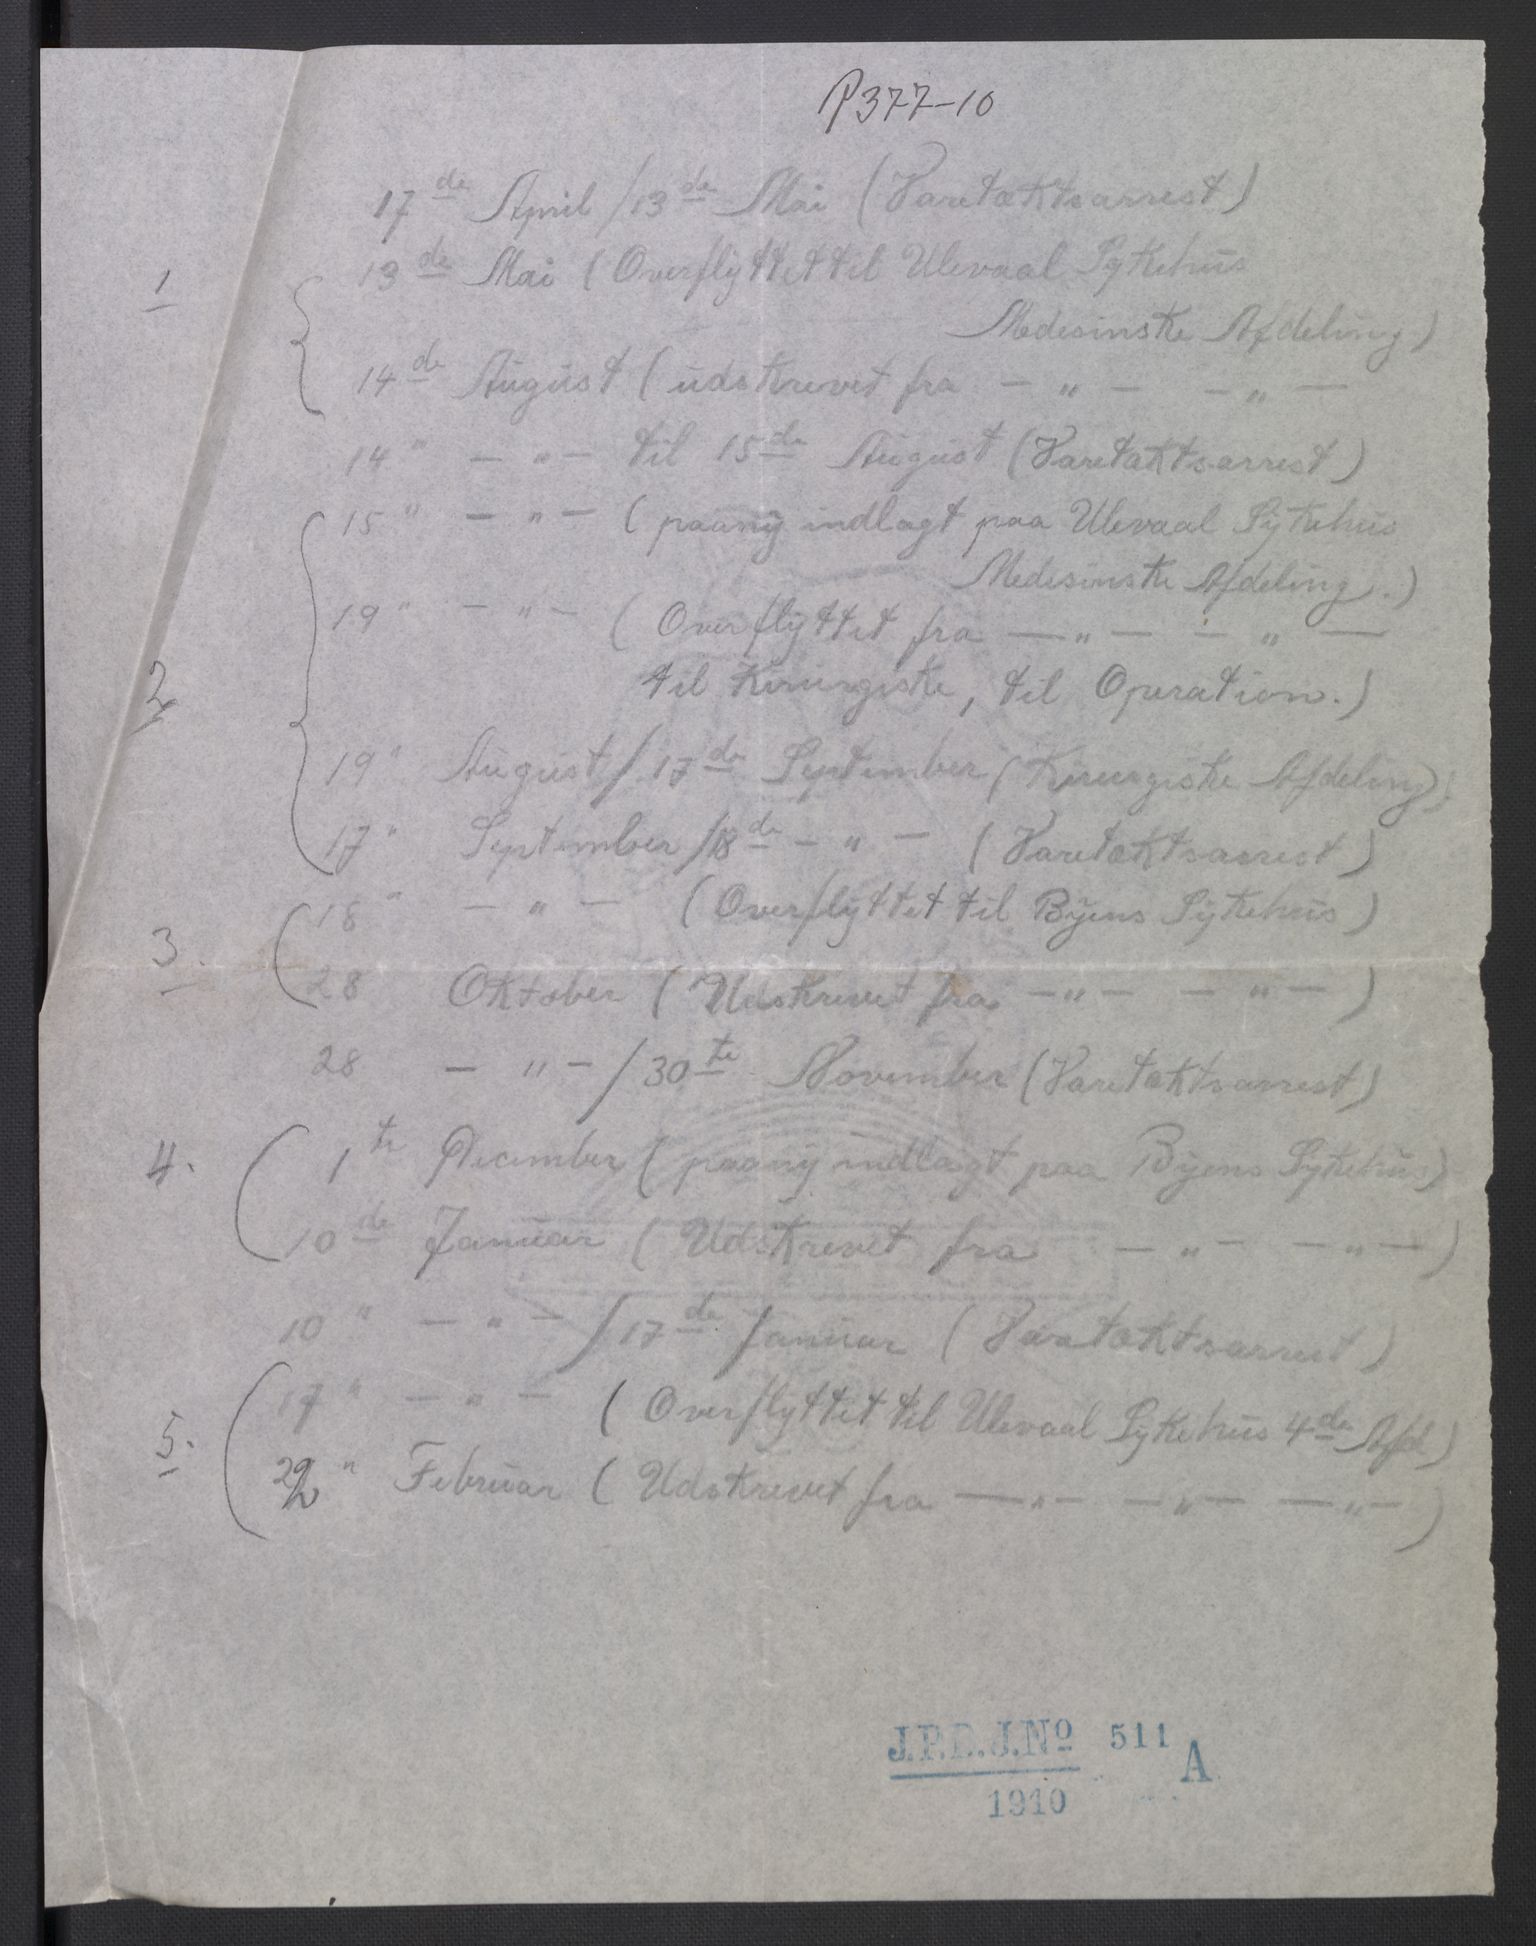 P377-10
17de April / 13de Mai (Varetæktsarrest)
1 13de Mai (Overflyttet til Ulevaal Sykehus
Medesinske Afdeling.)
14de August (udskrevet fra — " — — " —
14 " — " — til 15de August (Varetæktsarrest)
15 " — " — (paany indlagt paa Ulevaal Sykehus
Medesinske Afdeling.)
19 " — " — (Overflyttet fra — " — — " —
2 til Kirurgiske, til Operation.)
19 " August / 17de September (Kirurgiske Afdeling)
17 " September / 18de — " — (Varetæktsarrest)
18 " — " — (Overflyttet til Byens Sykehus)
3.
28 Oktober (Udskrevet fra — " — — " —)
28 — " — / 30te November (Varetæktsarrest)
4. 1te December (paany indlagt paa Byens Sykehus)
10de Januar (Udskrevet fra — " — — " —)
10 " — " — / 17de Januar (Varetæktsarrest)
17 " — " — (Overflyttet til Ulevaal Sykehus 4de Afd)
5.
22 " Februar (Udskrevet fra — " — — " — — " —)
J.P.D.J.No 511 A
1910